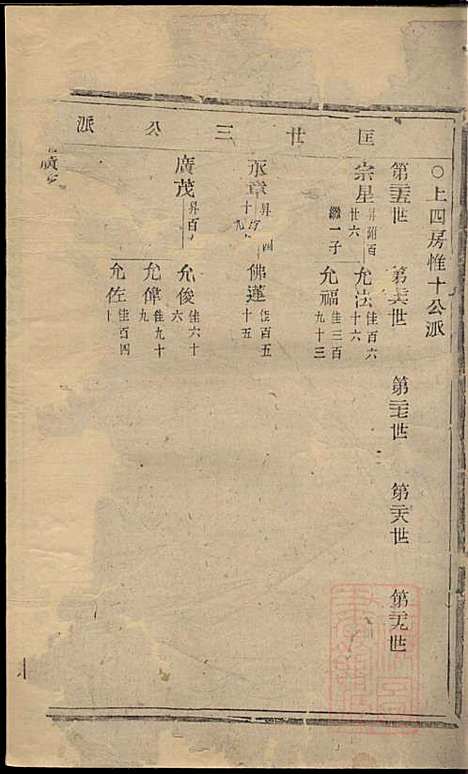 匡廿三公派
○上四房惟十公派
第二十五世 第二十六世 第二十七世 第二十八世 第二十九世
宗星
廿六
允法 佳百六十六
繼一子
允福 佳三百九十三
永章
佛蓮 佳百五十五
廣茂 昇百
允俊 佳六十六
允偉 佳九十九
允佐 佳百四十
廣